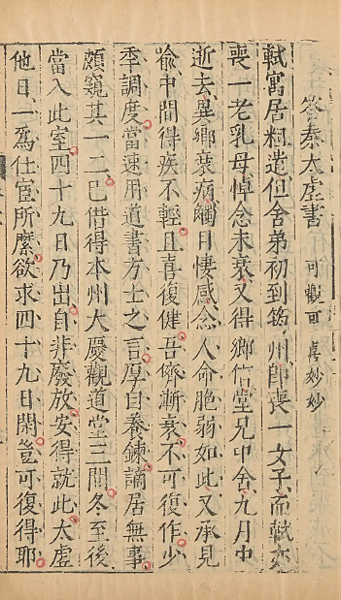 答秦太虛書 可觀可喜妙妙
軾寓居粗遣但舍弟初到筠州卽喪一女子而軾亦
喪一老乳母悼念未衰又得鄉信堂兄中舍九月中
逝去異鄉衰病觸目悽感念人命脆弱如此又承見
喻中間得疾不輕且喜復健吾儕漸衰不可復作少
季調度當速用道書方士之言厚自養鍊謫居無事
頗窺其一二已借得本州大慶觀道堂三間冬至後
當入此室四十九日乃出自非廢放安得就此太虛
他日一爲仕宦所縻欲求四十九日閑豈可復得耶